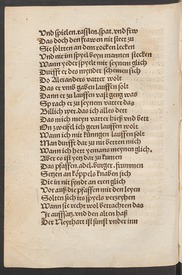 Vnd spielen. rasslen. spat. vnd frw
Das doch den frawen nit steet zu
Sie solten an dem rocken lecken
Vnd nit im spyel beyn mannen stecken
Wann oder spyele mit seynem glich
Durfft er des mynder schemen sich
Do Alexanders vatter wolt
Das er vmb gaben lauffen solt
Dann er zu lauffen vast gering was
Sprach er zu seynem vatter das
Billich wer. das ich alles dett
Das mich meyn vatter hieß vnd bett
On zweifel ich gern lauffen wolt
Wann ich mit künnigen lauffen solt
Man durfft dar zu mir betten mich
Wann ich hett yemans meynen glich.
Aber es ist yetz dar zu kumen
Das pfaffen. adel. burger. frummen
Setzen an köppels knaben sich
Die in nit sinde an eren glich
Vor auß die pfaffen mit den leyen
Solten sich irs spyels verzyehen
Wann sie recht wol betrachten das
Ir auffsatz. vnd den alten haß
Der Neythart ist sunst vnder inn